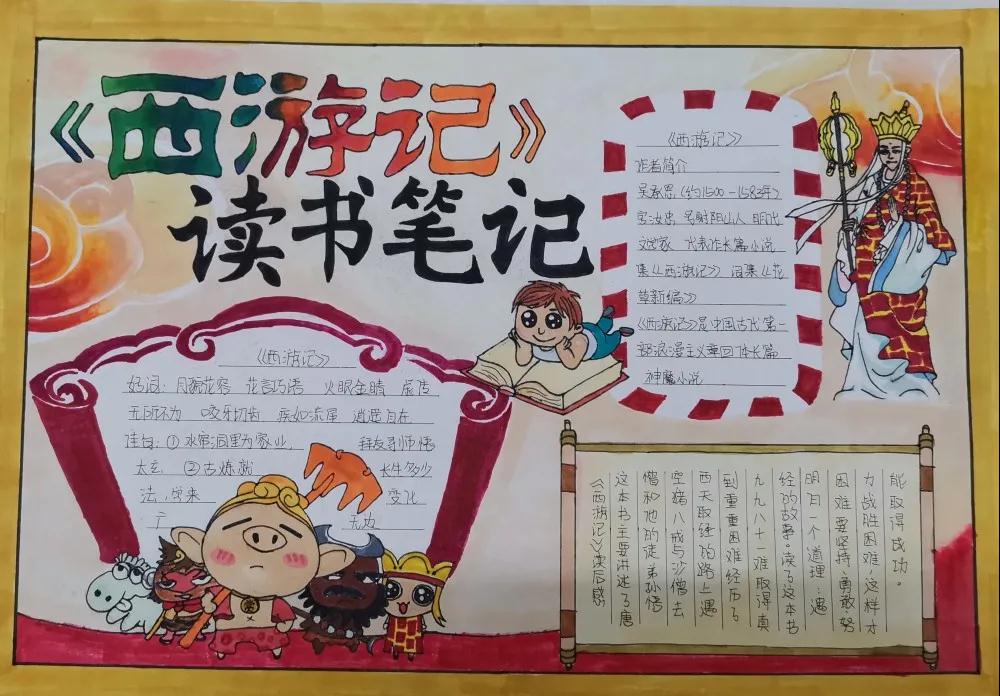 《西游记》
读书笔记
《西游记》
作者简介
吴承恩（约1500-1582年）
字汝忠，号射阳山人 明代
文学家 代表作长篇小说
集《西游记》 词集《花
草新编》
《西游记》是中国古代第一
部浪漫主义章回体长篇
神魔小说
《西游记》
好词：月貌花容 花言巧语 火眼金睛 虚传
无所不为 咬牙切齿 疾如流星 逍遥自在
佳句：①水帘洞里为家业， 拜友寻师悟
太玄。②古炼就 长生多少
法，学来 变化
广 无边
《西游记》读后感
这本书主要讲述了唐
僧和他的徒弟孙悟
空猪八戒与沙僧去
西天取经的路上遇
到重重困难经历了
九九八十一难取得真
经的故事。读了这本书
明白一个道理：遇
困难要坚持、勇敢、努
力战胜困难，这样才
能取得成功。